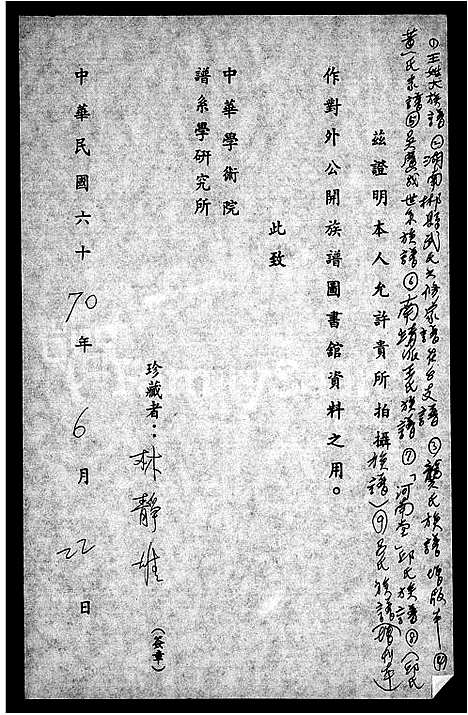 ①王姓大族譜②湖南郴縣武氏六修家譜名白支譜③龔氏族譜增版本④
黃氏家譜⑤吳廣成世系族譜⑥南靖派王氏族譜⑦「河南堂」邱氏族譜⑧(邱氏
族譜)⑨呂氏族譜(增刊本)
茲證明本人允許貴所拍攝
作對外公開族譜圖書館資料之用。
此致
中華學術院
譜系學研究所
珍藏者：林靜雄(簽章)
中華民國六十70年6月22日